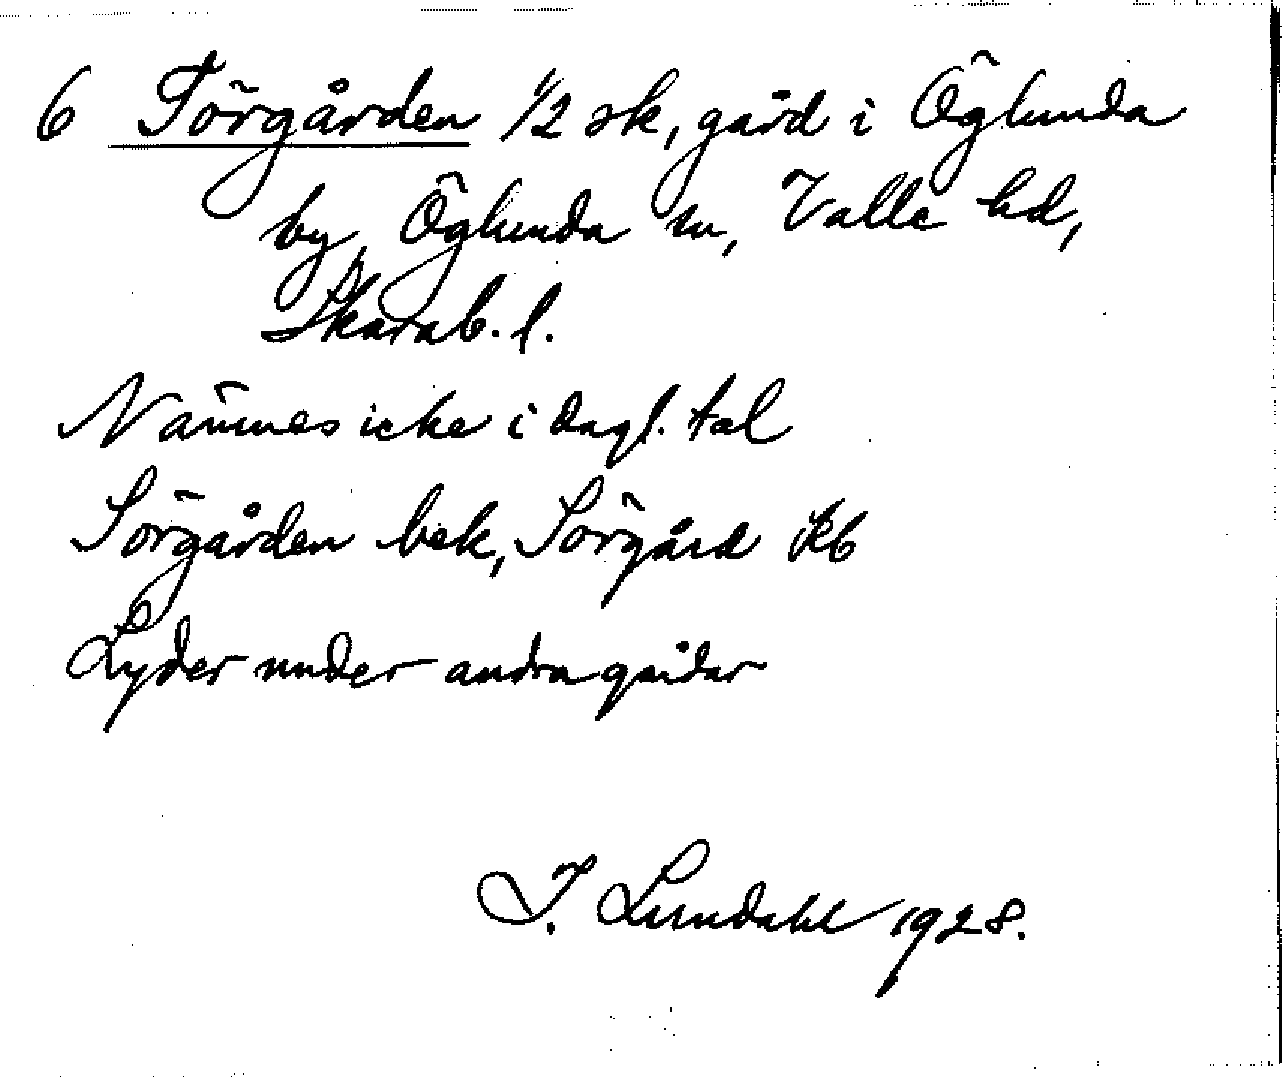 6 Törgården 1/2 sk, gård i Öglunda
by, Öglunda sn, Valle hd,
Skarab. l.
Nämnes icke i dagl. tal
Sörgården bek, Sörgård Kb
Lyder under andra gårdar
I. Lundahl 1928.